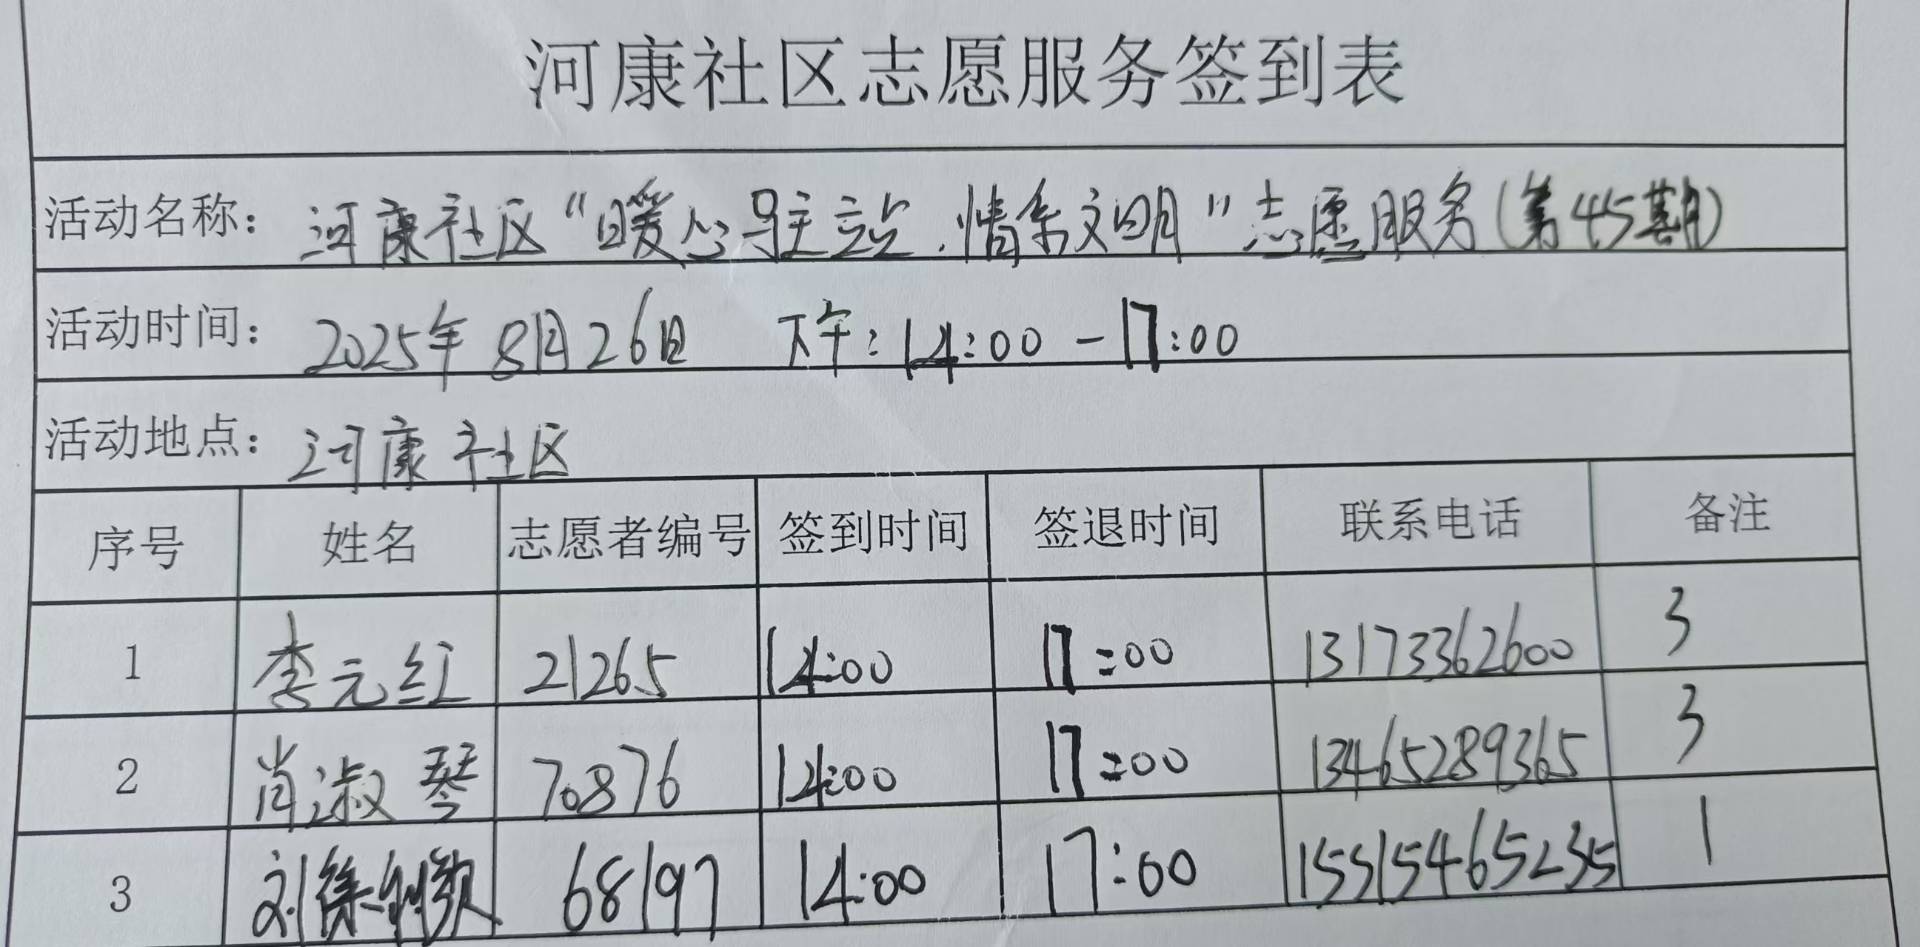 河康社区志愿服务签到表
活动名称： 河康社区“暖心驿站.情系文明”志愿服务(第45期)
活动时间： 2025年8月26日 下午：14:00－17:00
活动地点： 河康社区
序号 姓名 志愿者编号 签到时间 签退时间 联系电话 备注
1 李元红 21265 14:00 17:00 13173362600 3
2 肖淑琴 70876 14:00 17:00 13465289365 3
3 刘徐 68197 14:00 17:00 1